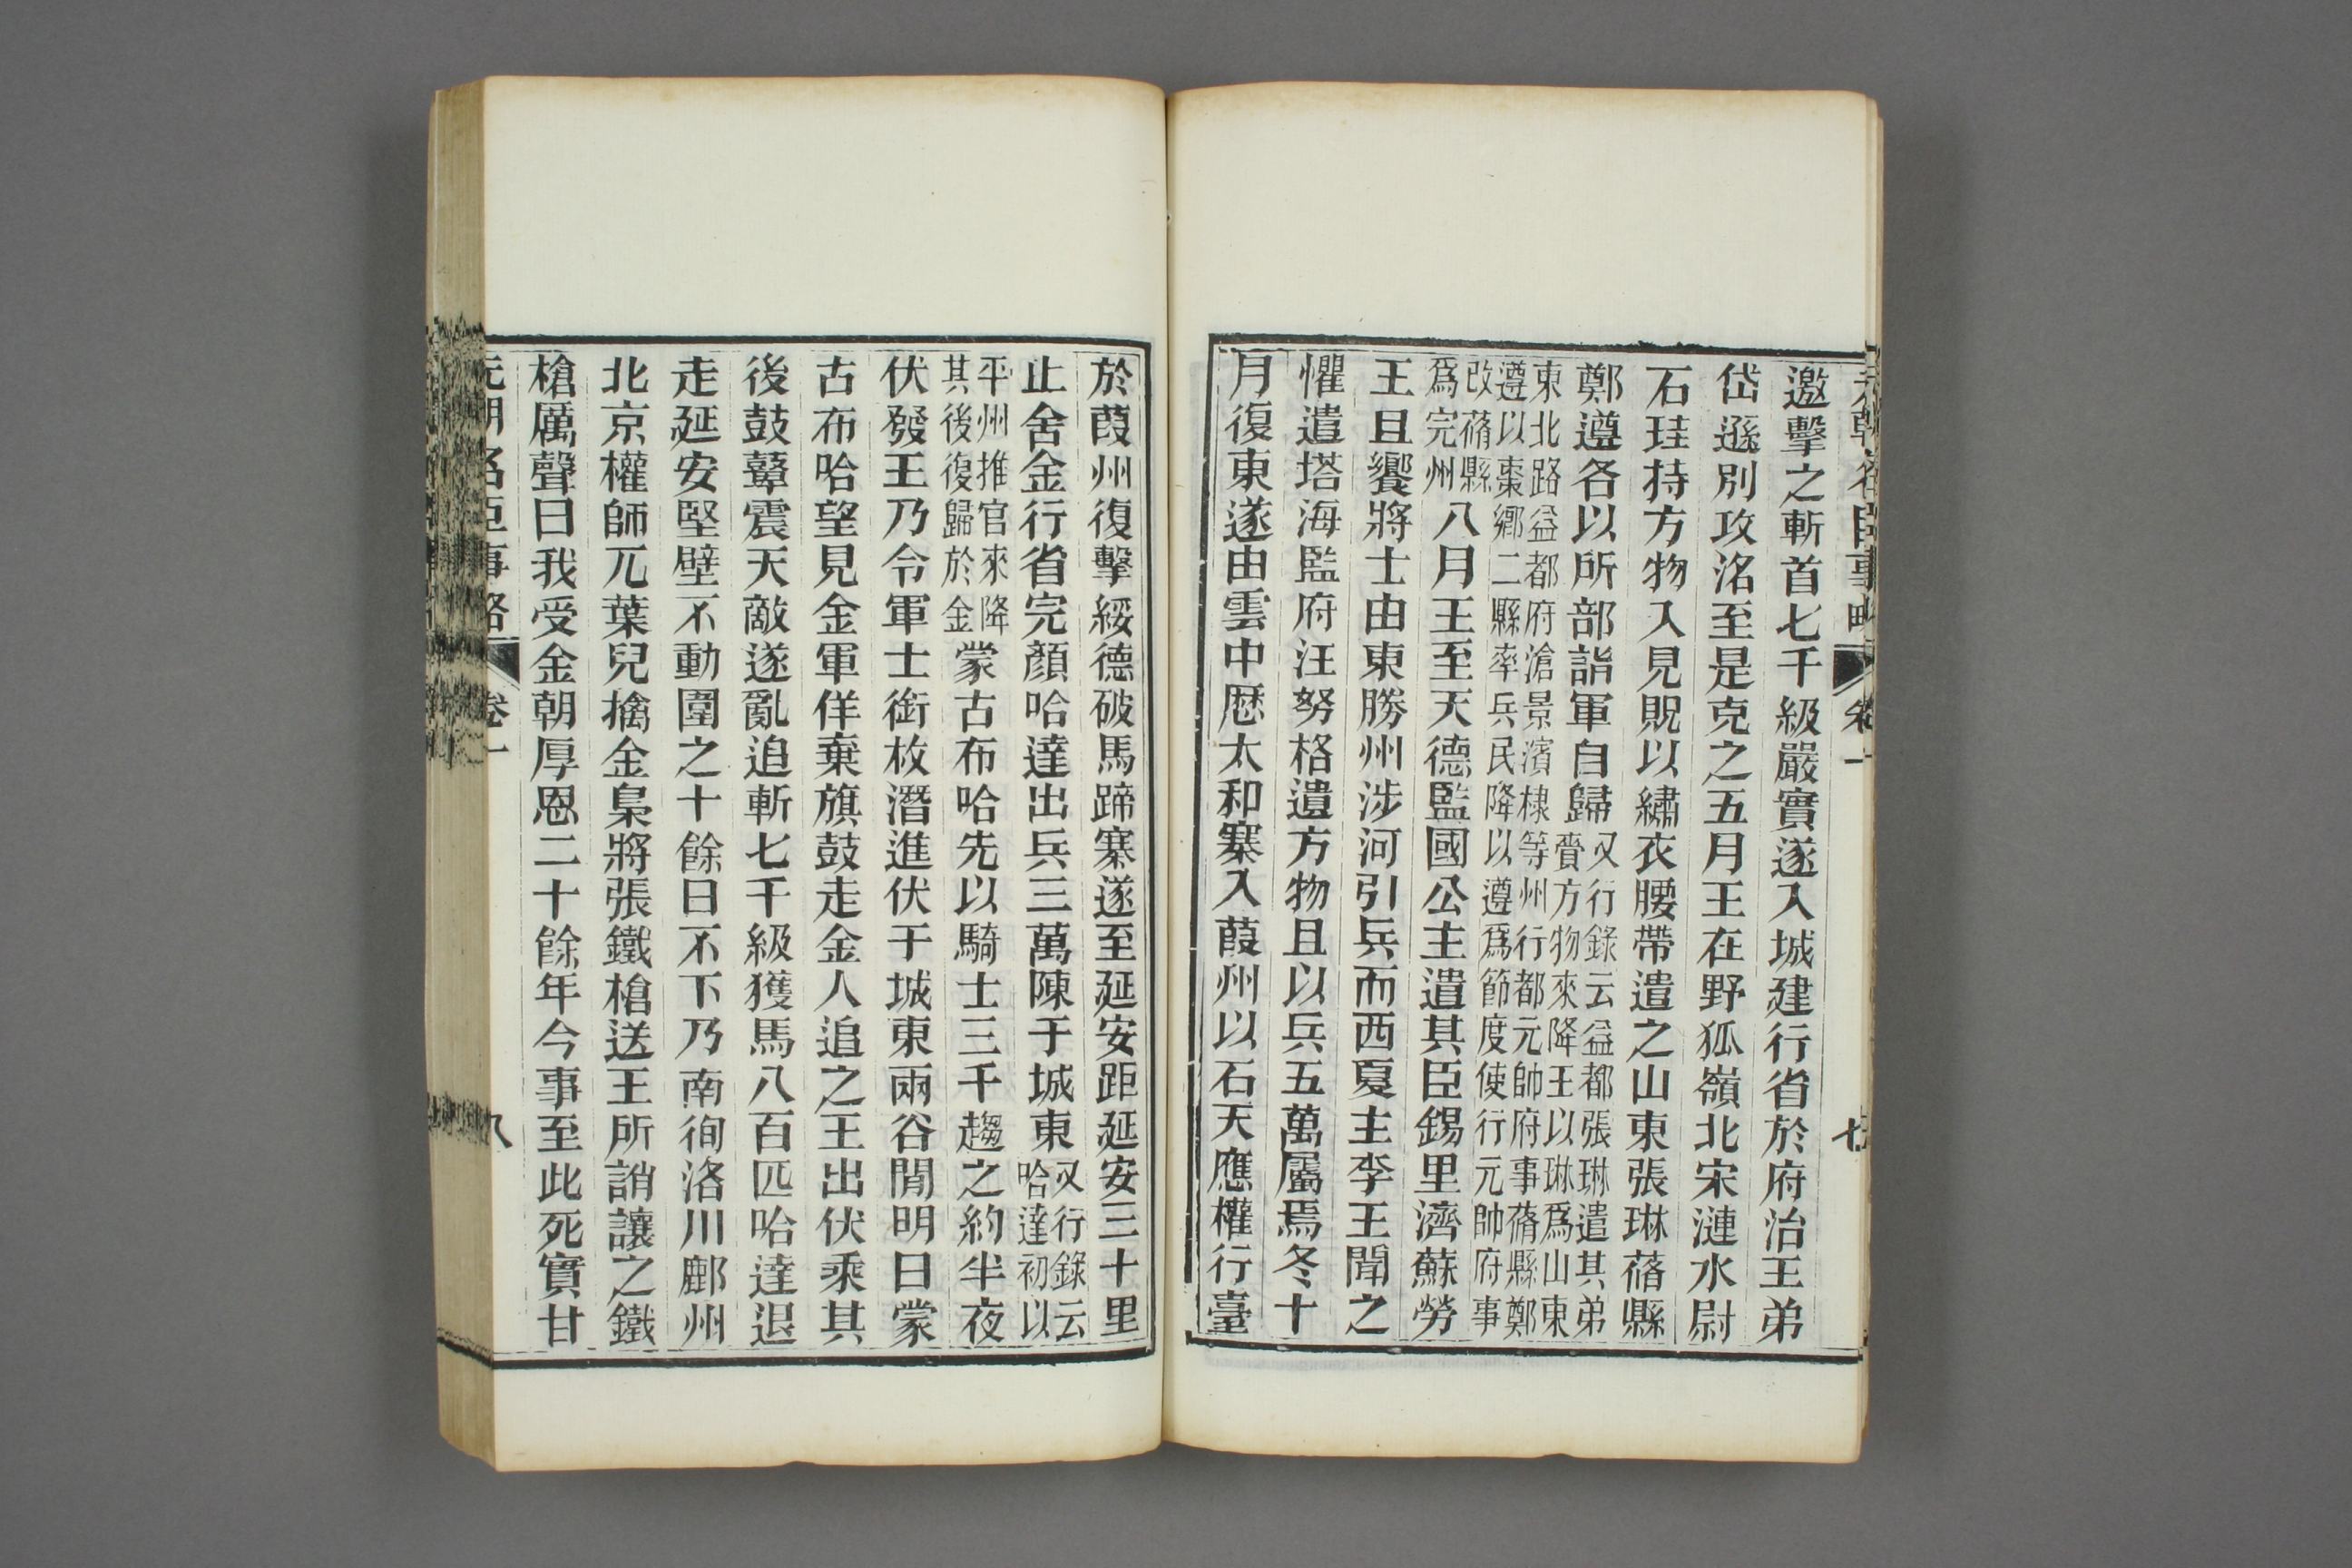 元朝名臣事略 卷一 七
邀擊之斬首七千級嚴實遂入城建行省於府治王弟
岱遜別攻洺至是克之五月王在野狐嶺北宋漣水尉
石珪持方物入見貺以繡衣腰帶遣之山東張琳蓨縣
鄭遵各以所部詣軍自歸
又行錄云益都張琳遣其弟
賫方物來降王以琳為山東
東北路益都府滄景濱棣等州行都元帥府事蓨縣鄭
遵以棗鄉二縣率兵民降以遵爲節度使行元帥府事
改蓨縣
爲完州
八月王至天德監國公主遣其臣錫里濟蘇勞
王且饗將士由東勝州涉河引兵而西夏主李王聞之
懼遣塔海監府汪努格遺方物且以兵五萬屬焉冬十
月復東遂由雲中歷太和寨入葭州以石天應權行臺
於葭州復擊綏德破馬蹄寨遂至延安距延安三十里
止舍金行省完顏哈達出兵三萬陳于城東
又行錄云
哈達初以
平州推官來降
其後復歸於金
蒙古布哈先以騎士三千趨之約半夜
伏發王乃令軍士銜枚潛進伏于城東兩谷閒明日蒙
古布哈望見金軍佯棄旗鼓走金人追之王出伏乘其
後鼓鼙震天敵遂亂追斬七千級獲馬八百匹哈達退
走延安堅壁不動圍之十餘日不下乃南徇洛川鄜州
北京權師兀葉兒擒金梟將張鐵槍送王所誚讓之鐵
槍厲聲曰我受金朝厚恩二十餘年今事至此死實甘
元朝名臣事略 卷一 八